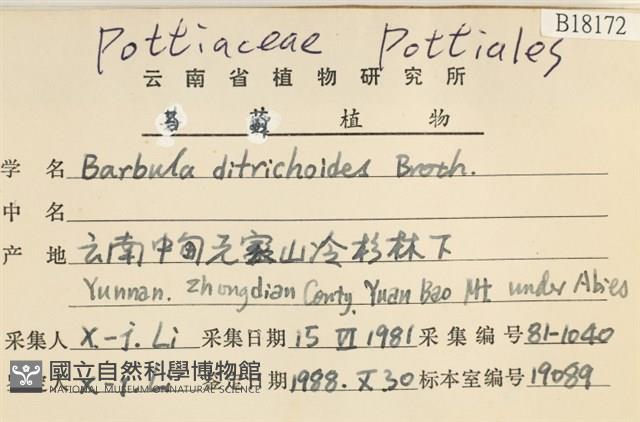 B18172
Pottiaceae Pottiales
云南省植物研究所
苔藓植物
学名 Barbula ditrichoides Broth.
中名
产地 云南中甸元宝山冷杉林下
Yunnan. Zhongdian Conty. Yuan Bao Mt. under Abies
采集人 X.-j. Li 采集日期 15 VI 1981 采集编号 81-1040
定人 X.-j. Li 鉴定日期 1988. X 30 标本室编号 19089
國立自然科學博物館
NATIONAL MUSEUM OF NATURAL SCIENCE